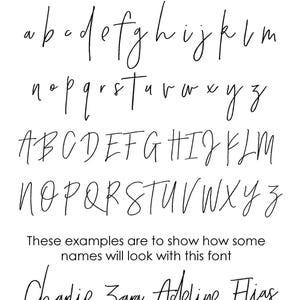 a b c d e f g h i j k l m
n o p q r s t u v w x y z
A B C D E F G H I J K L M
N O P Q R S T U V W X Y Z
These examples are to show how some
names will look with this font
Charlie Zara Adeline Elias